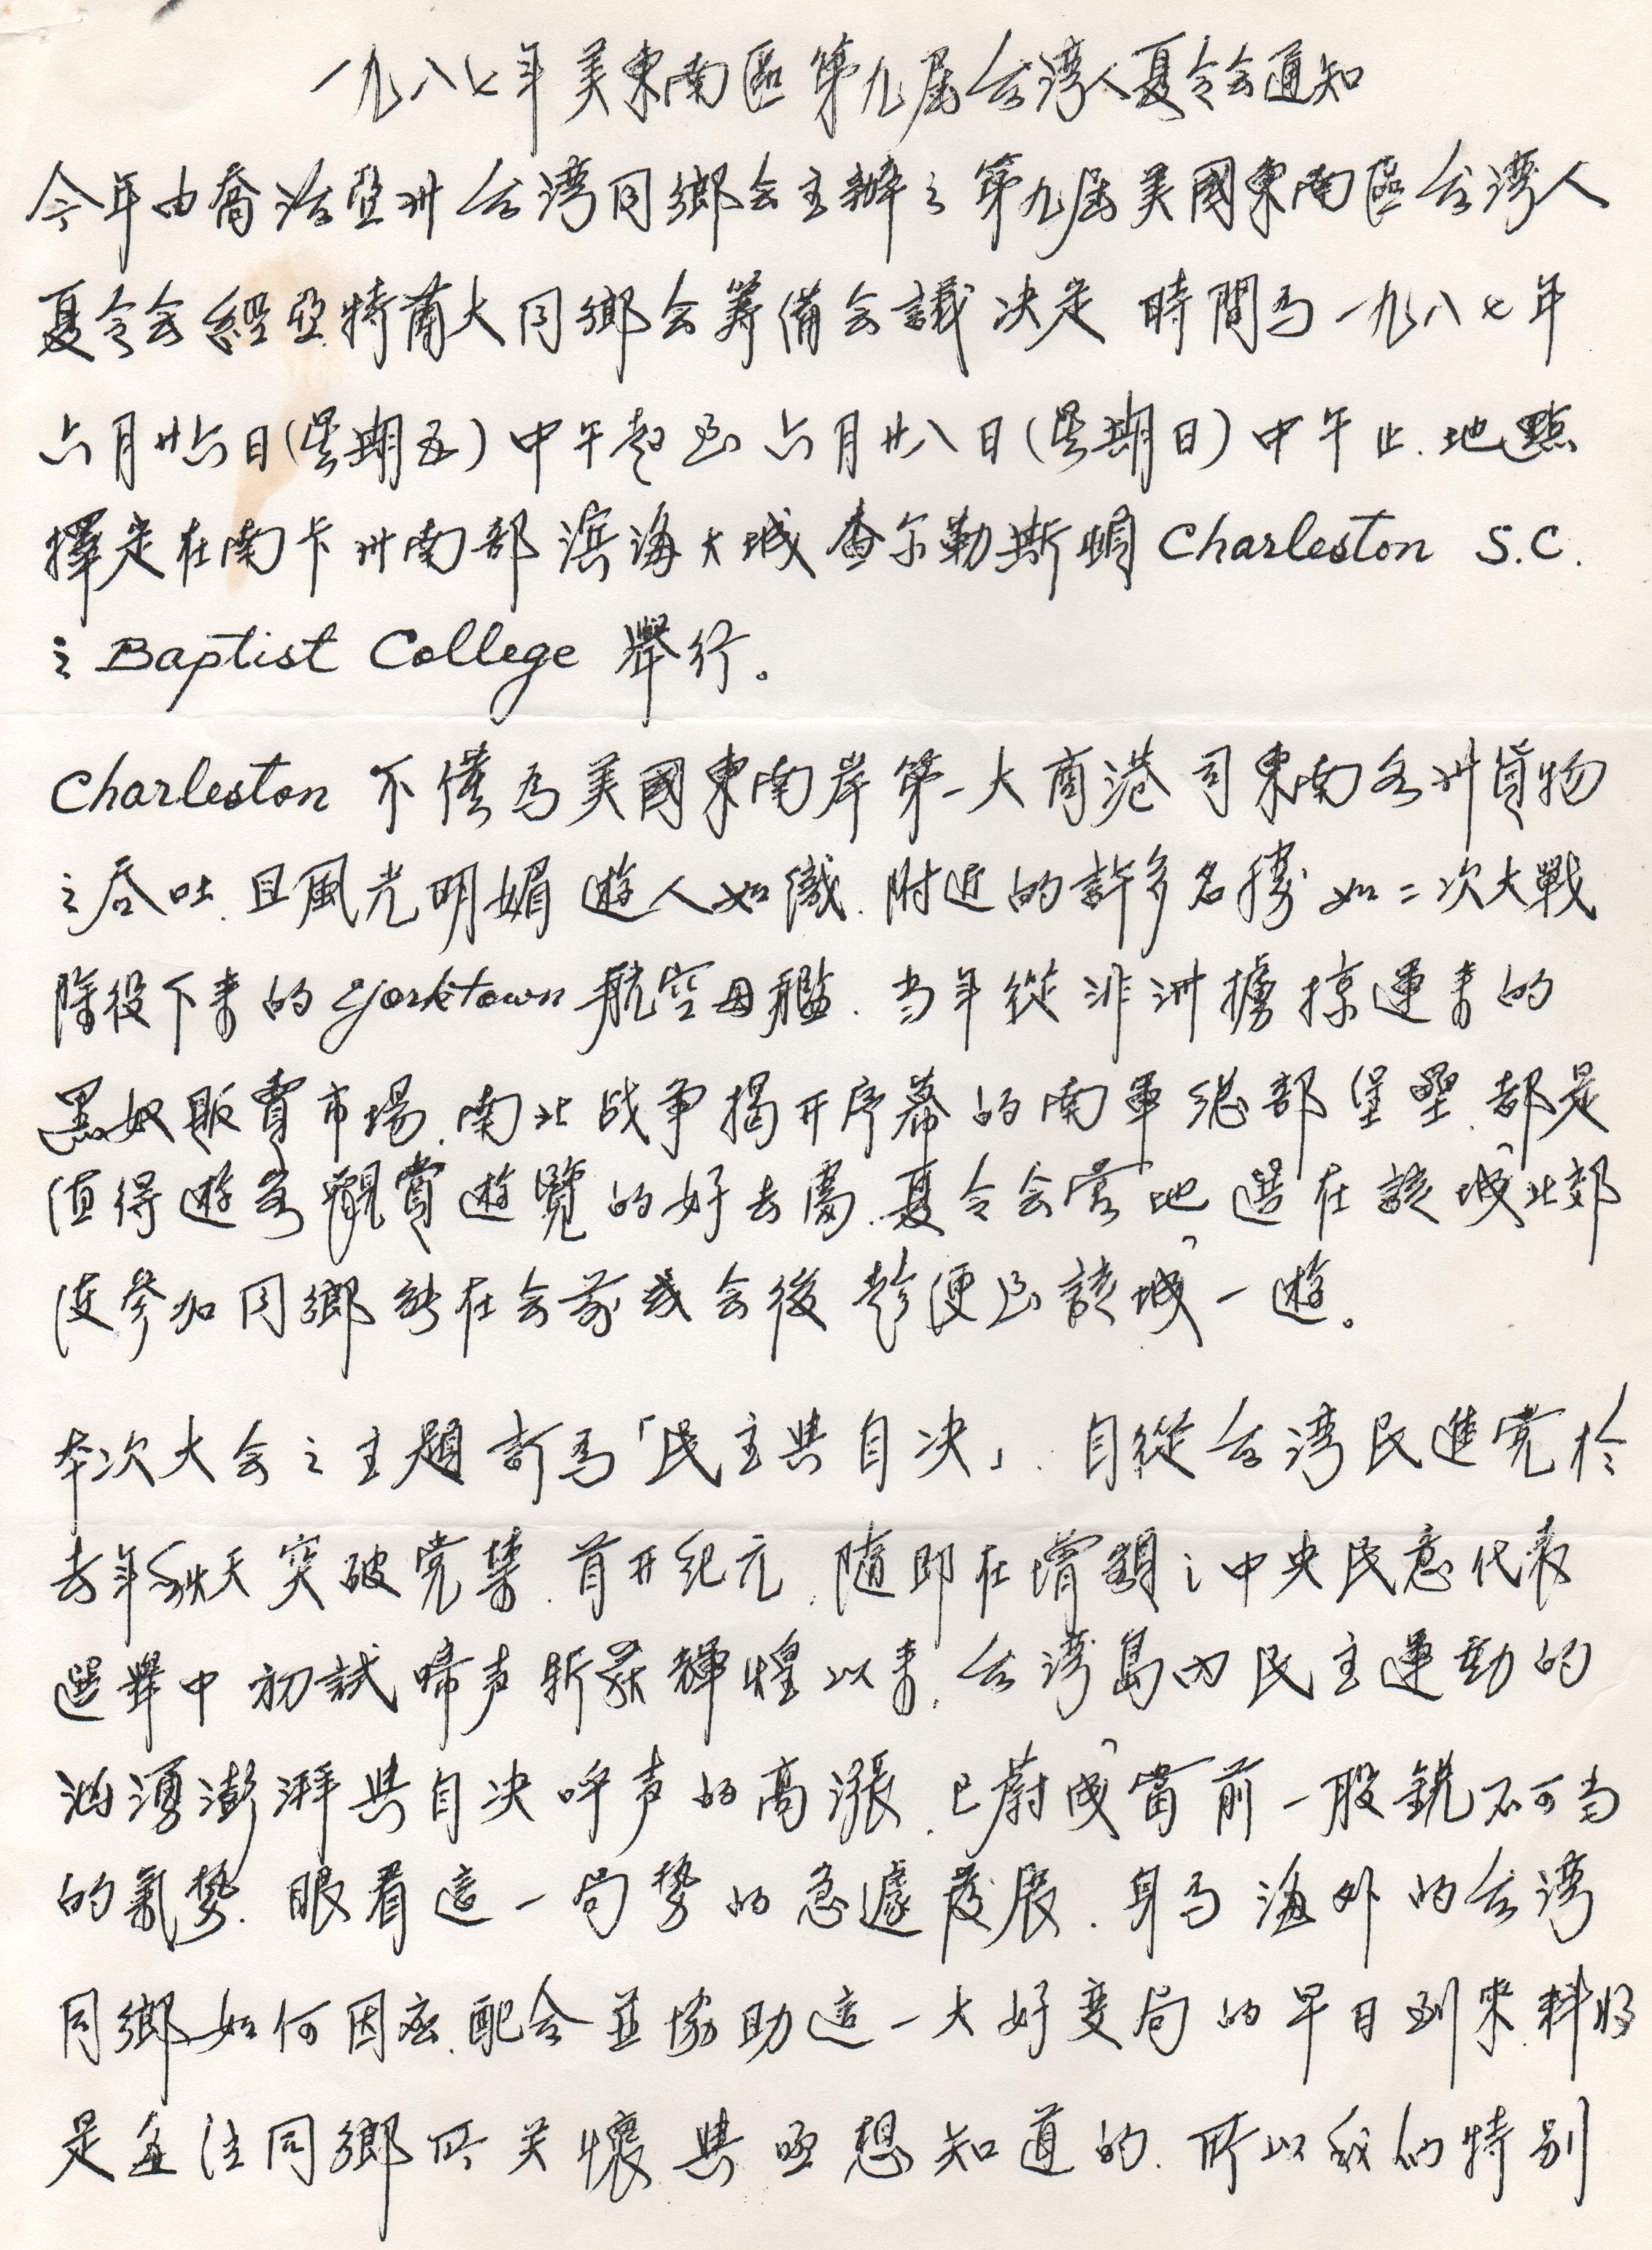 一九八七年美東南區第九屆台湾人夏令会通知
今年由喬治亞洲台湾同鄉会主辦之第九屆美國東南區台湾人
夏令会經亞特蘭大同鄉会籌備会議决定 時間為一九八七年
六月廿六日(星期五)中午起至六月廿八日(星期日)中午止.地點
擇定在南卡洲南部滨海大城查尔勒斯頓 Charleston S.C.
之 Baptist College 舉行。
Charleston 不僅為美國東南岸第一大商港司東南各洲貨物
之吞吐.且風光明媚遊人如織.附近的許多名勝如二次大戰
除役下來的 Yorktown 航空母艦.当年從非洲擄掠運来的
黑奴販賣市場.南北战爭揭开序幕的南軍總部堡壘.都是
值得遊客觀賞遊覽的好去處.夏令会営地選在該城北郊
使參加同鄉能在会前或会後趁便至該城一遊。
本次大会之主題訂為「民主與自决」.自從台湾民進党於
去年秋天突破党禁.首开纪元.隨即在增額之中央民意代表
選舉中初試啼声斬获輝煌以来.台湾島内民主運動的
洶湧澎湃與自决呼声的高漲.已蔚成當前一股銳不可当
的氣势.眼看這一局势的急遽發展.身為海外的台湾
同鄉如何因应.配合並協助這一大好变局的早日到來.料將
是每位同鄉所关懷與亟想知道的.所以我们特别